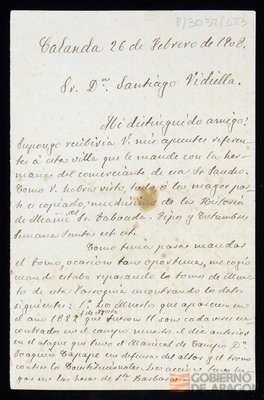 P/3032/253
Calanda 26 de Febrero de 1908.
Sr. Dn. Santiago Vidiella.
Mi distinguido amigo:
Supongo recibiria V. mis apuntes referen-
tes á esta villa que le mandé con la her-
mana del comerciante de esa Sr.
Como V. habrá visto, todo ó la mayor par-
te es copiado, de la Historia
de Alcañiz, del Sr. Taboada. Tipos y Costumbres
Semana Santa etc. etc.
Como tenia para mandar
el tomo, ocasion tan oportuna, me copio
cuando estaba repasando los tomos de Muerto
de esta Parroquia encontrando los datos
siguientes: 1º Los Muertos que aparecen en
el año 1822 que fueron 11 son cadaveres en-
contrados en el campo muertos el dia anterior
en el ataque que tuvo el Mariscal de Campo Dn.
Joaquin Capapé en defensa del altar y el trono
contra los Constitucionales. Las acciones
en las de Sta. Barbara
GOBIERNO
DE ARAGON